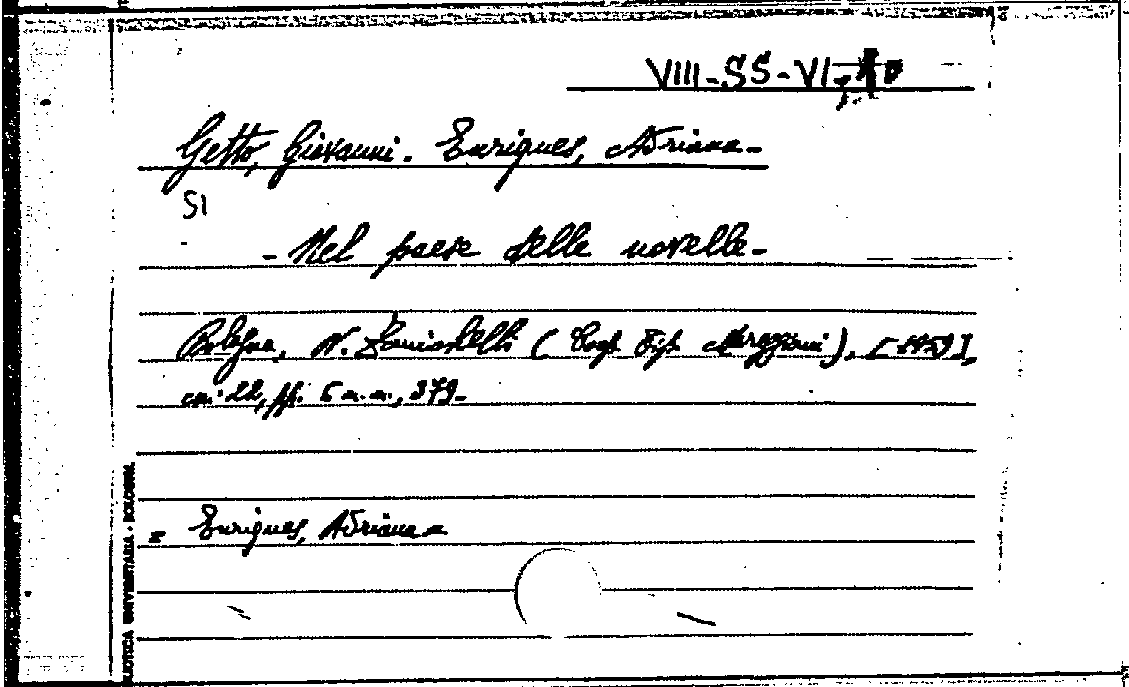 VIII-SS-VI-
Getto, Giovanni. Enriques, Adriana-
SI
- Nel paese delle novelle-
Bologna, N. Zanichelli (Coop. Tip. Azzoguidi), [1959],
cm. 22, pp. 6 n.n., 379-
Enriques, Adriana
BIBLIOTECA UNIVERSITARIA - BOLOGNA